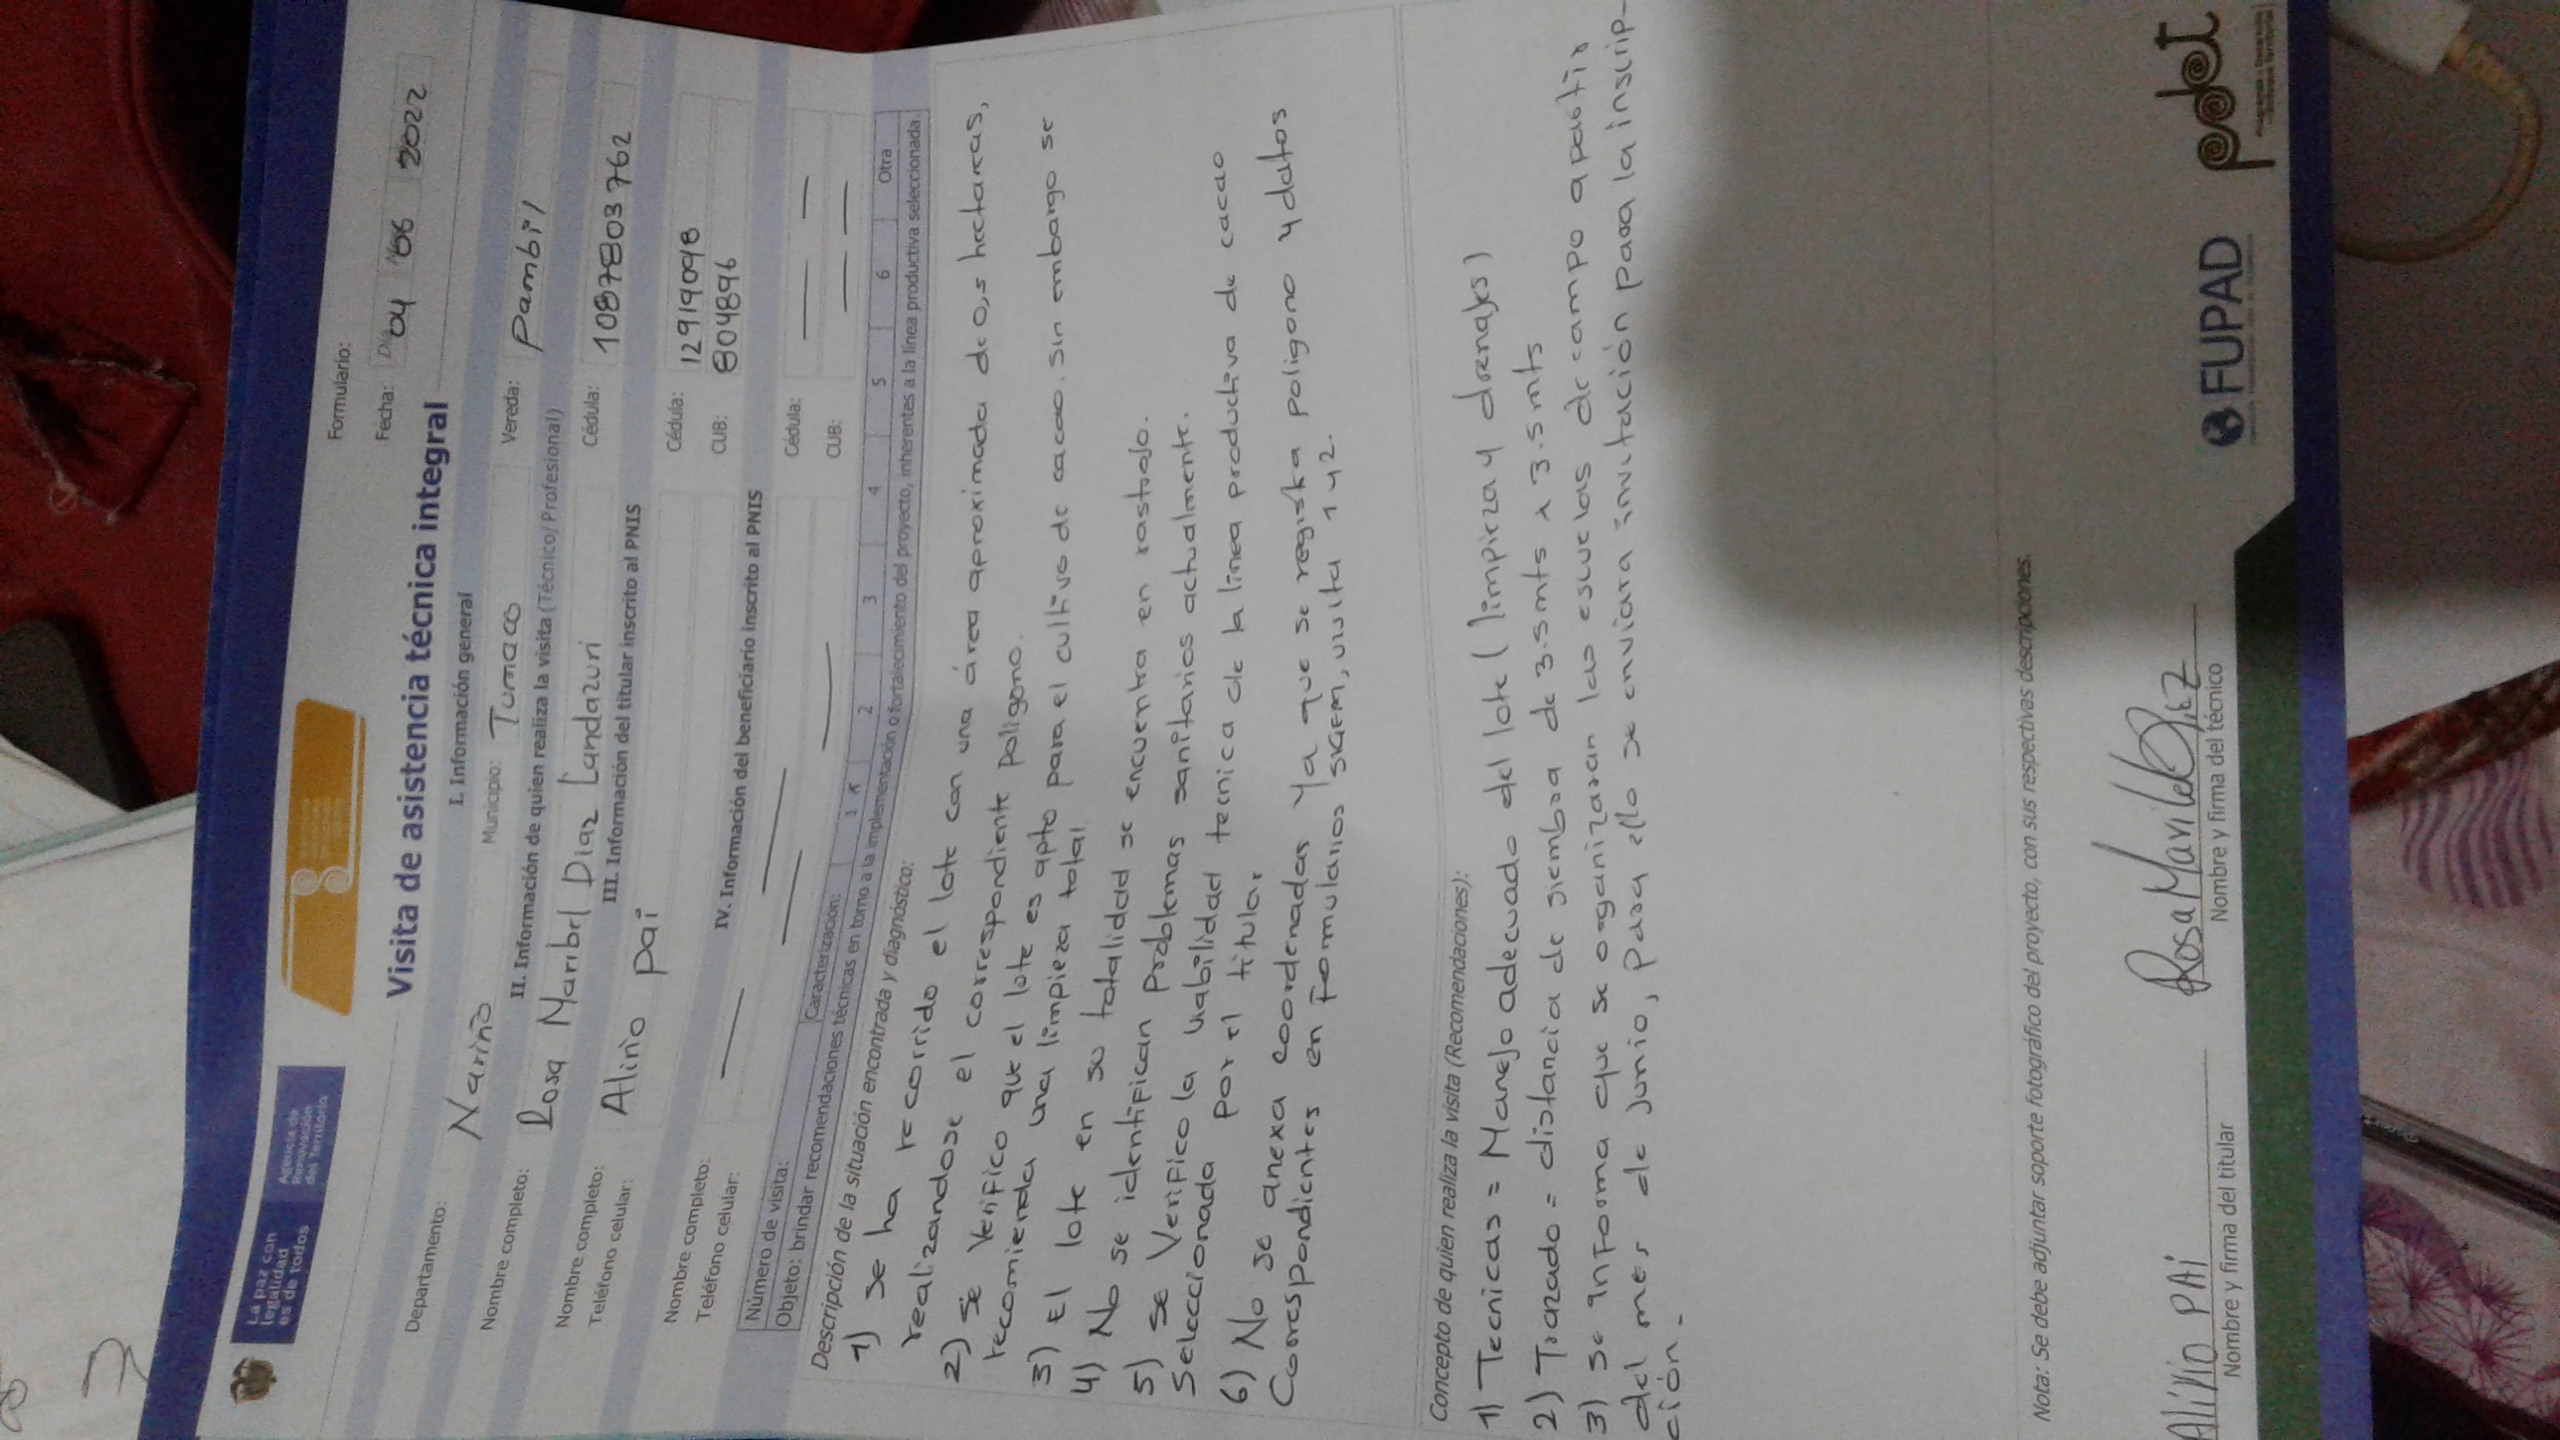 La paz con
legalidad
es de todos
Agencia de
Renovación
del Territorio
Formulario:
Visita de asistencia técnica integral
Fecha: Día 04 Mes 06 2022
I. Información general
Departamento: Nariño Municipio: Tumaco Vereda: Pambil
II. Información de quien realiza la visita (Técnico/Profesional)
Nombre completo: Rosa Maribel Diaz Landazuri Cédula: 1087803762
III. Información del titular inscrito al PNIS
Nombre completo: Alirio pai Cédula: 12919098
Teléfono celular: — CUB: 804896
IV. Información del beneficiario inscrito al PNIS
Nombre completo: — Cédula: — —
Teléfono celular: — — CUB: — —
Número de visita: Caracterización: 1 x 2 3 4 5 6 Otra
Objeto: brindar recomendaciones técnicas en torno a la implementación o fortalecimiento del proyecto, inherentes a la línea productiva seleccionada.
Descripción de la situación encontrada y diagnóstico:
1) se ha recorrido el lote con una área aproximada de 0,5 hectareas,
realizandose el correspondiente poligono.
2) se Verifico que el lote es apto para el cultivo de cacao. sin embargo se
recomienda una limpieza total.
3) El lote en su totalidad se encuentra en rastrojo.
4) No se identifican problemas sanitarios actualmente.
5) se Verifico la viabilidad tecnica de la linea productiva de cacao
Seleccionada por el titular
6) No se anexa coordenadas Ya que se registra poligono y datos
Correspondientes en Formularios SIGEM, visita 1 y 2.
Concepto de quien realiza la visita (Recomendaciones):
1) Tecnicas = Manejo adecuado del lote (limpieza y drenajes)
2) Trazado = distancia de siembra de 3.5mts x 3.5mts
3) se informa que se organizaran las escuelas de campo apartir
del mes de junio, para ello se enviara invitación para la inscrip-
ción.
Nota: Se debe adjuntar soporte fotográfico del proyecto, con sus respectivas descripciones.
Alirio PAI
Nombre y firma del titular
Rosa Maribel Diaz
Nombre y firma del técnico
FUPAD
pdet